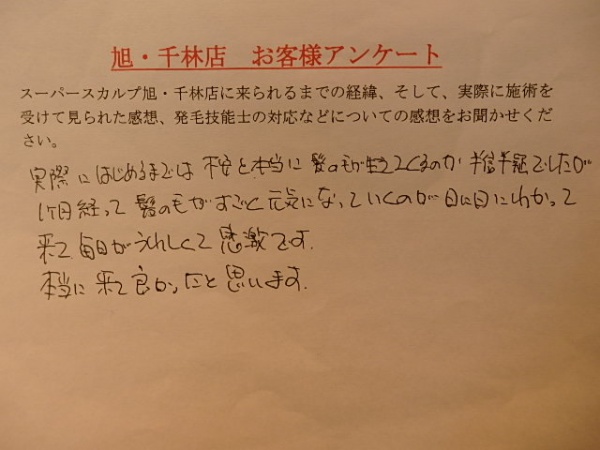 旭・千林店 お客様アンケート
スーパースカルプ旭・千林店に来られるまでの経緯、そして、実際に施術を
受けて見られた感想、発毛技能士の対応などについての感想をお聞かせくだ
さい。
実際にはじめるまでは 不安と本当に髪の毛が生えてくるのか半信半疑でしたが
1ヶ月経って 髪の毛がすごく元気になっていくのが日に日にわかって
来て毎日がうれしくて感激です.
本当に来て良かったと思います.